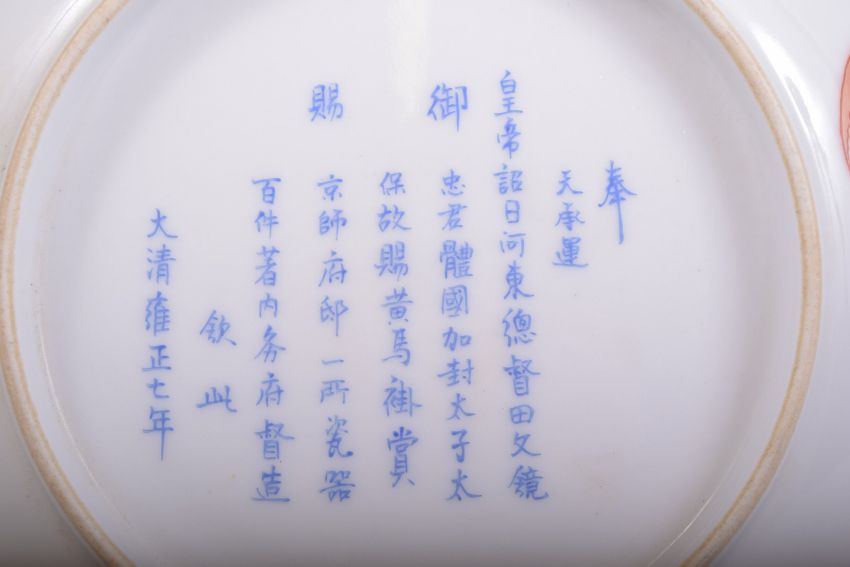 奉
天承運
皇帝詔日河東總督田文鏡
御 忠君體國加封太子太
保故賜黃馬褂賞
賜 京師府邸一所瓷器
百件著内务府督造
欽此
大清雍正七年